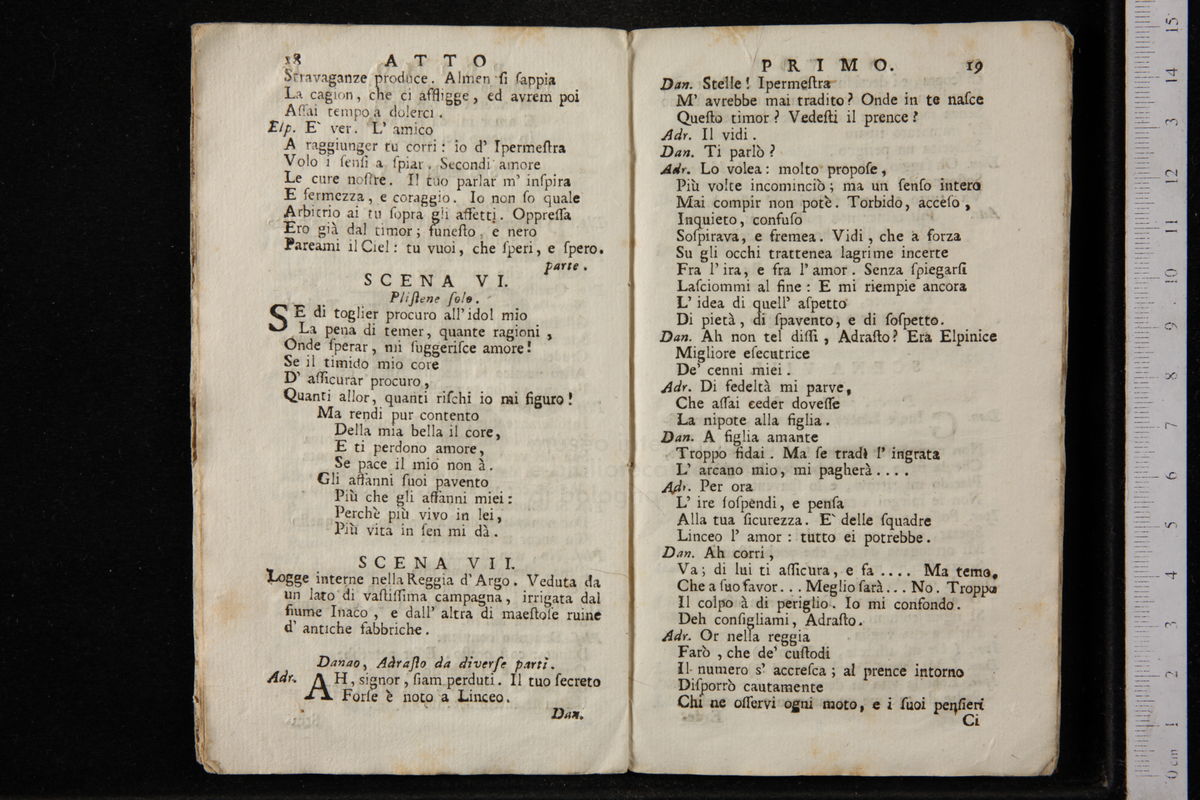 18 ATTO
Stravaganze produce. Almen ſi ſappia
La cagion, che ci affligge, ed avrem poi
Aſſai tempo a dolerci.
Elp. E' ver. L' amico
A raggiunger tu corri: io d' Ipermeſtra
Volo i ſenſi a ſpiar. Secondi amore
Le cure noſtre. Il tuo parlar m' inſpira
E fermezza, e coraggio. Io non ſo quale
Arbitrio ai tu ſopra gli affetti. Oppreſſa
Ero già dal timor; funeſto, e nero
Pareami il Ciel: tu vuoi, che ſperi, e ſpero.
parte.
SCENA VI.
Pliſtene ſolo.
SE di toglier procuro all' idol mio
La pena di temer, quante ragioni,
Onde ſperar, mi ſuggeriſce amore!
Se il timido mio core
D' aſſicurar procuro,
Quanti allor, quanti riſchi io mi figuro!
Ma rendi pur contento
Della mia bella il core,
E ti perdono amore,
Se pace il mio non à.
Gli affanni ſuoi pavento
Più che gli affanni miei:
Perchè più vivo in lei,
Più vita in ſen mi dà.
SCENA VII.
Logge interne nella Reggia d' Argo. Veduta da
un lato di vaſtiſſima campagna, irrigata dal
fiume Inaco, e dall' altra di maeſtoſe ruine
d' antiche fabbriche.
Danao, Adraſto da diverſe parti.
Adr. AH, signor, ſiam perduti. Il tuo ſecreto
Forſe è noto a Linceo.
Dan.
PRIMO. 19
Dan. Stelle! Ipermeſtra
M' avrebbe mai tradito? Onde in te naſce
Queſto timor? Vedeſti il prence?
Adr. Il vidi.
Dan. Ti parlò?
Adr. Lo volea: molto propoſe,
Più volte incominciò; ma un ſenſo intero
Mai compir non potè. Torbido, acceſo,
Inquieto, confuſo
Soſpirava, e fremea. Vidi, che a forza
Su gli occhi trattenea lagrime incerte
Fra l' ira, e fra l' amor. Senza ſpiegarſi
Laſciommi al fine: E mi riempie ancora
L' idea di quell' aſpetto
Di pietà, di ſpavento, e di ſoſpetto.
Dan. Ah non tel diſſi, Adraſto? Era Elpinice
Migliore eſecutrice
De' cenni miei.
Adr. Di fedeltà mi parve,
Che aſſai ceder doveſſe
La nipote alla figlia.
Dan. A figlia amante
Troppo fidai. Ma ſe tradì l' ingrata
L' arcano mio, mi pagherà....
Adr. Per ora
L' ire ſoſpendi, e penſa
Alla tua ſicurezza. E' delle ſquadre
Linceo l' amor: tutto ei potrebbe.
Dan. Ah corri,
Va; di lui ti aſſicura, e fa.... Ma temo,
Che a ſuo favor... Meglio ſarà... No. Troppo
Il colpo à di periglio. Io mi confondo.
Deh conſigliami, Adraſto.
Adr. Or nella reggia
Farò, che de' cuſtodi
Il numero s' accreſca; al prence intorno
Diſporrò cautamente
Chi ne oſſervi ogni moto, e i ſuoi penſieri
Ci